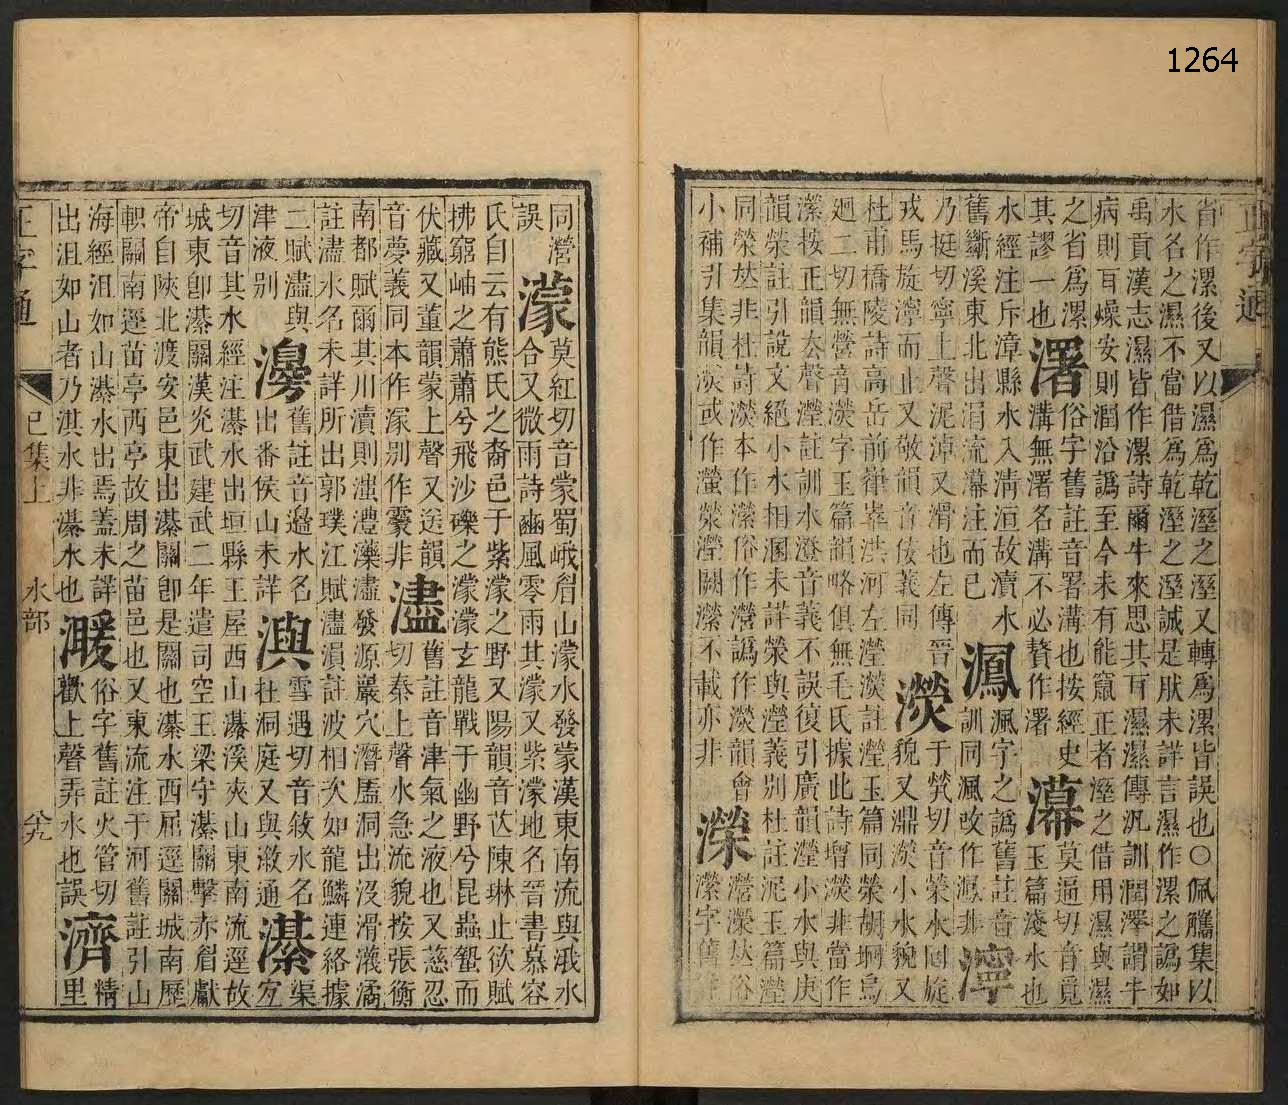 1264
正字通
省作漯後又以濕爲乾溼之溼又轉爲漯皆誤也○佩觿集以
水名之濕不當借爲乾溼之溼誠是肰未詳言濕作漯之譌如
禹貢漢志濕皆作漯詩爾牛來思其耳濕濕傳汎訓潤澤謂牛
病則耳燥安則潤沿譌至今未有能竄正者溼之借用濕與濕
之省爲漯
其謬一也
濖
俗字舊註音署溝也按經史
溝無濖名溝不必贅作濖
濗
莫逼切音覓
玉篇淺水也
水經注斥漳縣水入淸洹故瀆水
舊斷溪東北出涓流濗注而已
㵯
㴔字之譌舊註音
訓同㴔改作㵯非
濘
乃挺切寧上聲泥淖又滑也左傳晉
戎馬旋濘而止又敬韻音佞義同
濙
于煢切音榮水回旋
貌又濎濙小水貌又
杜甫橋陵詩高岳前嵂崒洪河左瀅濙註瀅玉篇同滎胡坰烏
迴二切無營音濙字玉篇韻略俱無毛氏據此詩增濙非當作
瀠按正韻去聲瀅註訓水澄音義不誤復引廣韻瀅小水與庚
韻滎註引說文絕小水相溷未詳滎與瀅義別杜註泥玉篇瀅
同滎𠀤非杜詩濙本作瀠俗作濴譌作濙韻會
小補引集韻濙或作瀯滎瀅闕瀠不載亦非
濚
瀯濴𠀤俗
瀠字舊註
同瀯
誤
濛
莫紅切音蒙蜀峨眉山濛水發蒙漢東南流與涐水
合又微雨詩豳風零雨其濛又紫濛地名晉書慕容
氏自云有熊氏之裔邑于紫濛之野又陽韻音㐫陳琳止欲賦
拂窮岫之蕭蕭兮飛沙礫之濛濛玄龍戰于幽野兮昆蟲蟄而
伏藏又董韻蒙上聲又送韻
音夢義同本作濛別作霥非
濜
舊註音津氣之液也又慈忍
切秦上聲水急流貌按張衡
南都賦爾其川瀆則滍澧灤濜發源巖穴潛㕎洞出沒滑瀎潏
註濜水名未詳所出郭璞江賦濜溳註波相次如龍鱗連絡據
二賦濜與
津液別
𣿊
舊註音邊水名
出番侯山未詳
㵰
雪遇切音敘水名
在洞庭又與漵通
濝
渠宜
切音其水經注濝水出垣縣王屋西山濝溪夾山東南流逕故
城東卽濝關漢光武建武二年遣司空王梁守濝關擊赤眉獻
帝自陝北渡安邑東出濝關卽是關也濝水西屈逕關城南歷
軹關南逕苗亭西亭故周之苗邑也又東流注于河舊註引山
海經沮如山濝水出焉蓋未詳
出沮如山者乃淇水非濝水也
㬉
俗字舊註火管切
歡上聲弄水也誤
濟
精里
正字通
巳集上
水部